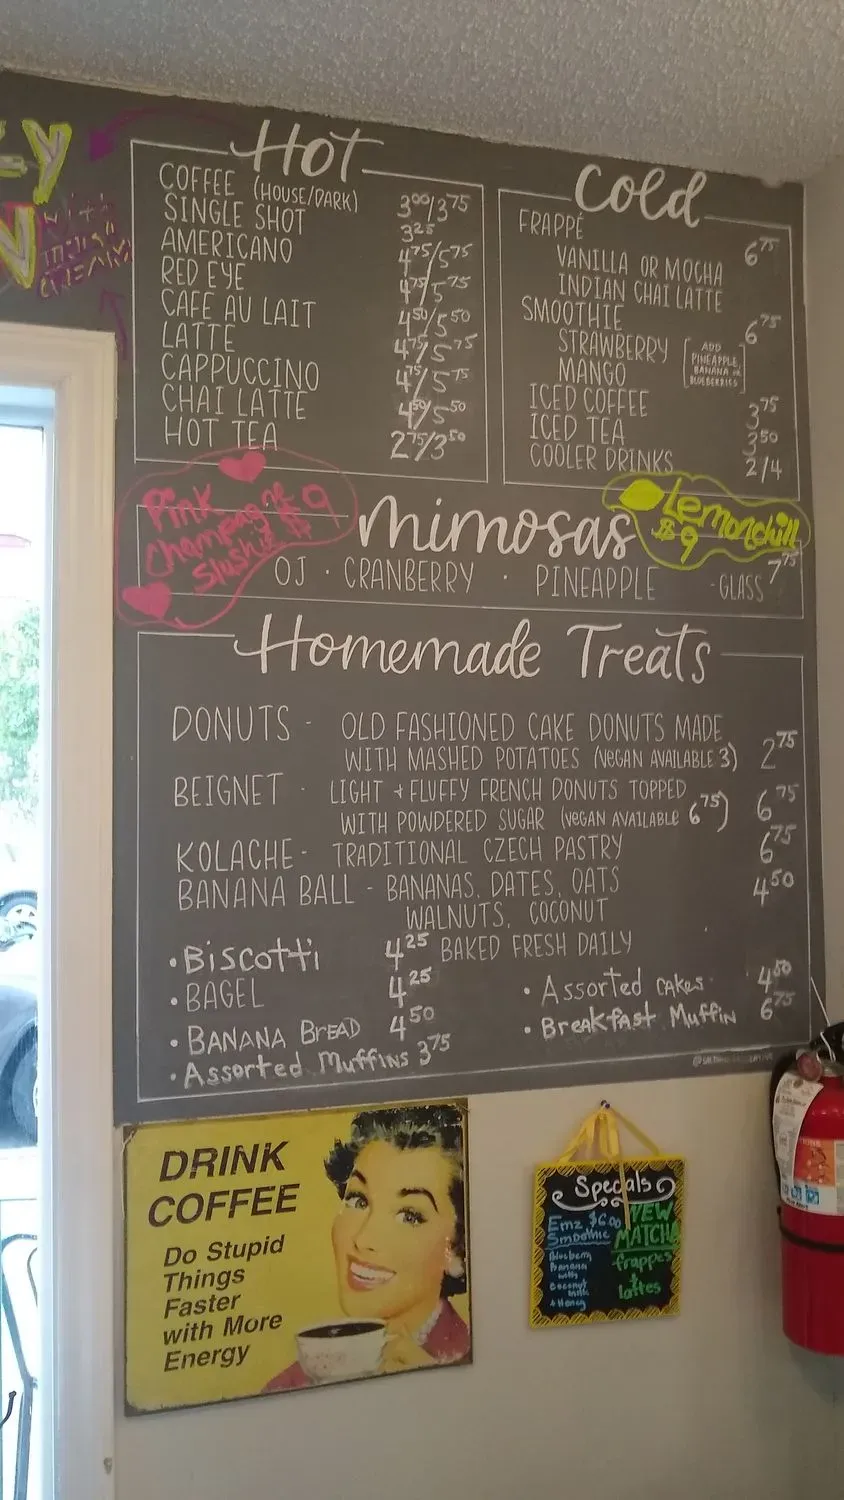 Hot
COFFEE (HOUSE/DARK) 3⁰⁰/3⁷⁵
SINGLE SHOT 3²⁵
AMERICANO 4⁷⁵/5⁷⁵
RED EYE 4⁷⁵/5⁷⁵
CAFE AU LAIT 4⁵⁰/5⁵⁰
LATTE 4⁷⁵/5⁷⁵
CAPPUCCINO 4⁷⁵/5⁷⁵
CHAI LATTE 4⁵⁰/5⁵⁰
HOT TEA 2⁷⁵/3⁵⁰
Cold
FRAPPÉ 6⁷⁵
VANILLA OR MOCHA
INDIAN CHAI LATTE
SMOOTHIE 6⁷⁵
STRAWBERRY
MANGO
ADD
PINEAPPLE,
BANANA OR
BLUEBERRIES
ICED COFFEE 3⁷⁵
ICED TEA 3⁵⁰
COOLER DRINKS 2/4
Pink
Champagne $9
Slushie
mimosas
Lemonchill
$9
OJ · CRANBERRY · PINEAPPLE - GLASS 7⁷⁵
Homemade Treats
DONUTS - OLD FASHIONED CAKE DONUTS MADE
WITH MASHED POTATOES (VEGAN AVAILABLE 3) 2⁷⁵
BEIGNET - LIGHT + FLUFFY FRENCH DONUTS TOPPED
WITH POWDERED SUGAR (VEGAN AVAILABLE 6⁷⁵) 6⁷⁵
KOLACHE - TRADITIONAL CZECH PASTRY 6⁷⁵
BANANA BALL - BANANAS, DATES, OATS 4⁵⁰
WALNUTS, COCONUT
BAKED FRESH DAILY
• Biscotti 4²⁵
• BAGEL 4²⁵
• BANANA BREAD 4⁵⁰
• Assorted Muffins 3⁷⁵
• Assorted cakes 4⁵⁰
• Breakfast Muffin 6⁷⁵
DRINK
COFFEE
Do Stupid
Things
Faster
with More
Energy
Specials
Emz $6.00
Smoothie
Blueberry
Banana
with
coconut
milk
+ Honey
NEW
MATCHA
frappes
+
lattes